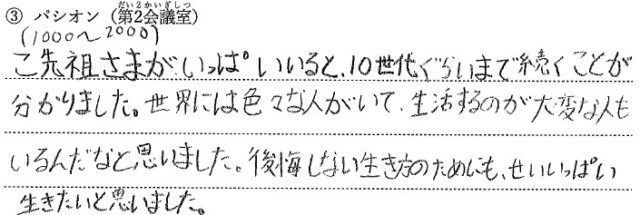 ③ パシオン（第2会議室）
だい2かいぎしつ
(1000〜2000)
ご先祖さまがいっぱいいると、10世代ぐらいまで続くことが
分かりました。世界には色々な人がいて、生活するのが大変な人も
いるんだなと思いました。後悔しない生き方のためにも、せいいっぱい
生きたいと思いました。